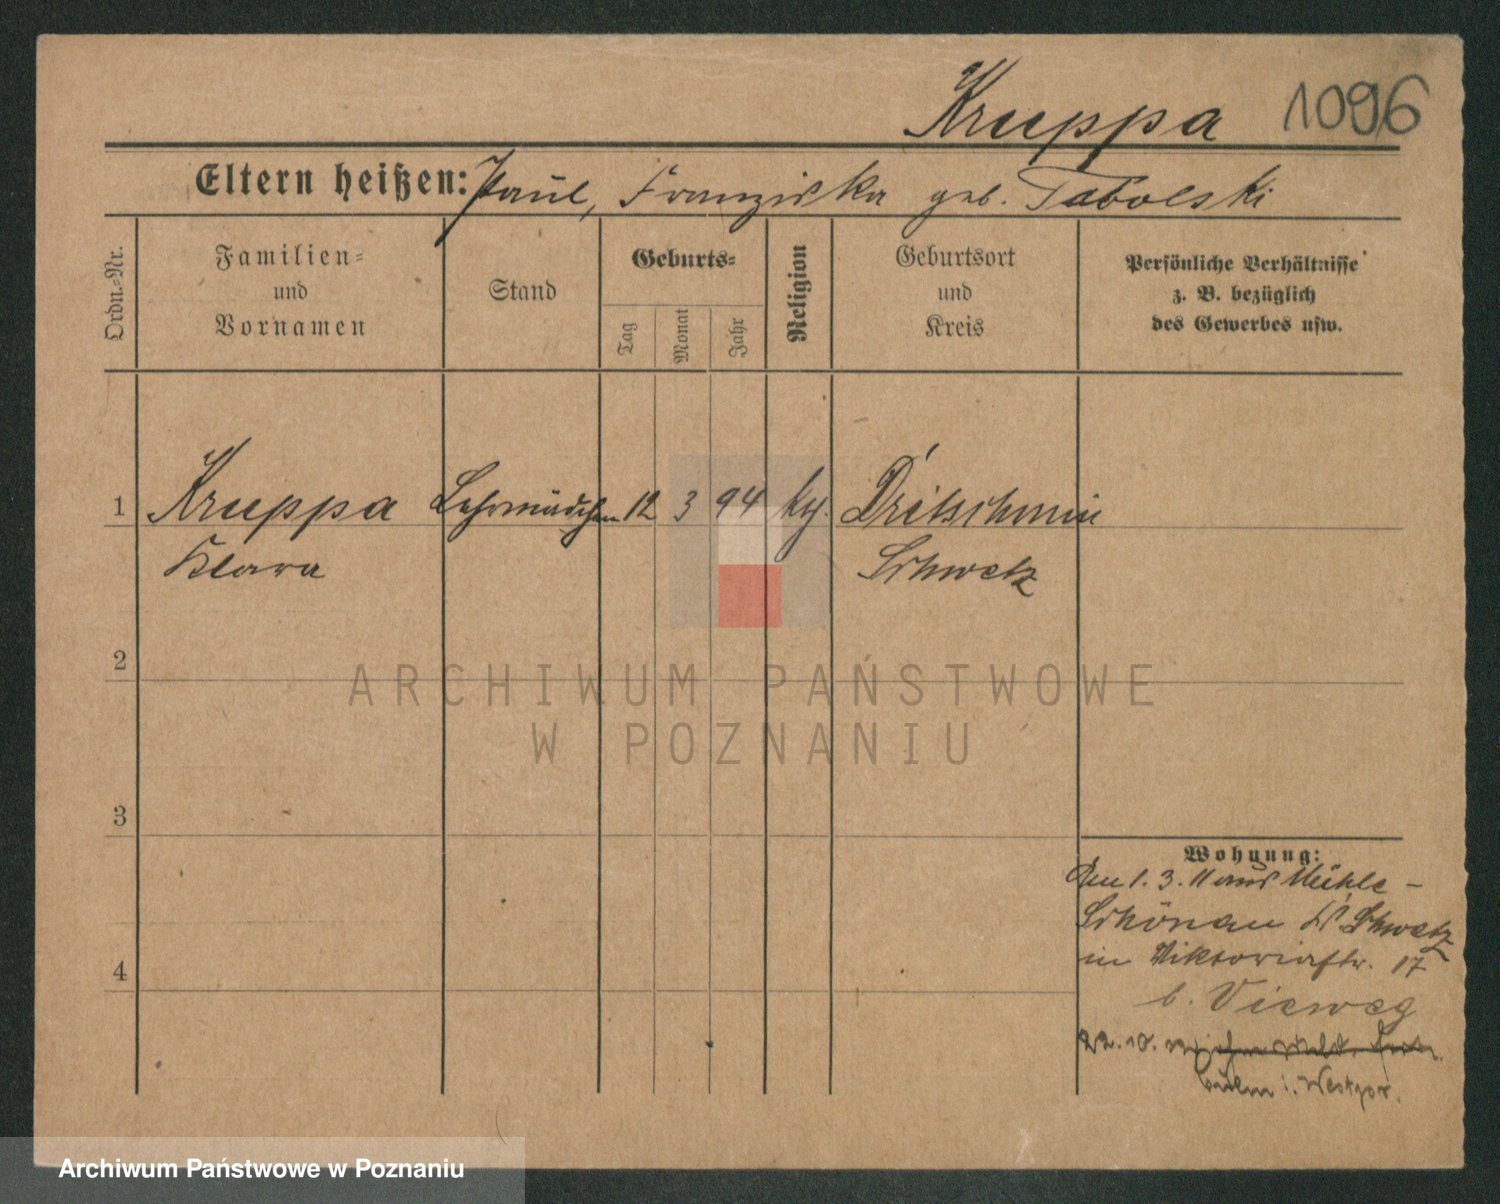 Kruppa 1096
Eltern heißen: Paul, Franziska geb. Tabolski
Ordn.-Nr.
Familien-
und
Vornamen
Stand
Geburts-
Tag
Monat
Jahr
Religion
Geburtsort
und
Kreis
Persönliche Verhältnisse
z. B. bezüglich
des Gewerbes usw.
1 Kruppa Lehrmädchen 12 3 94 kg. Dritschmin
Klara Schwetz
2
ARCHIWUM PAŃSTWOWE
W POZNANIU
3
Wohnung:
Den 1. 3. 11 aus Mühle-
Schönau Schwetz
in Viktoriastr. 17
b. Vieweg
4
22. 10.
Culm i. Westpr.
Archiwum Państwowe w Poznaniu